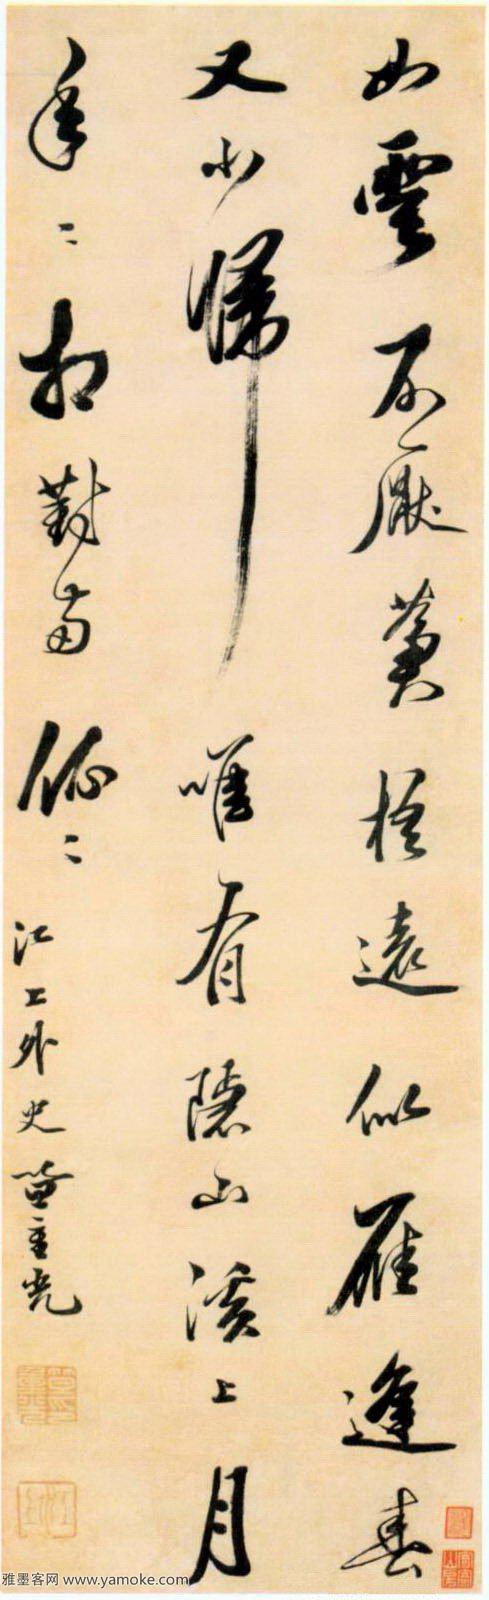 如雲不厭蒼梧遠似雁逢春
又北歸唯有隱山溪上月
年〻相對兩依〻江上外史笪重光
雅墨客网 www.yamoke.com